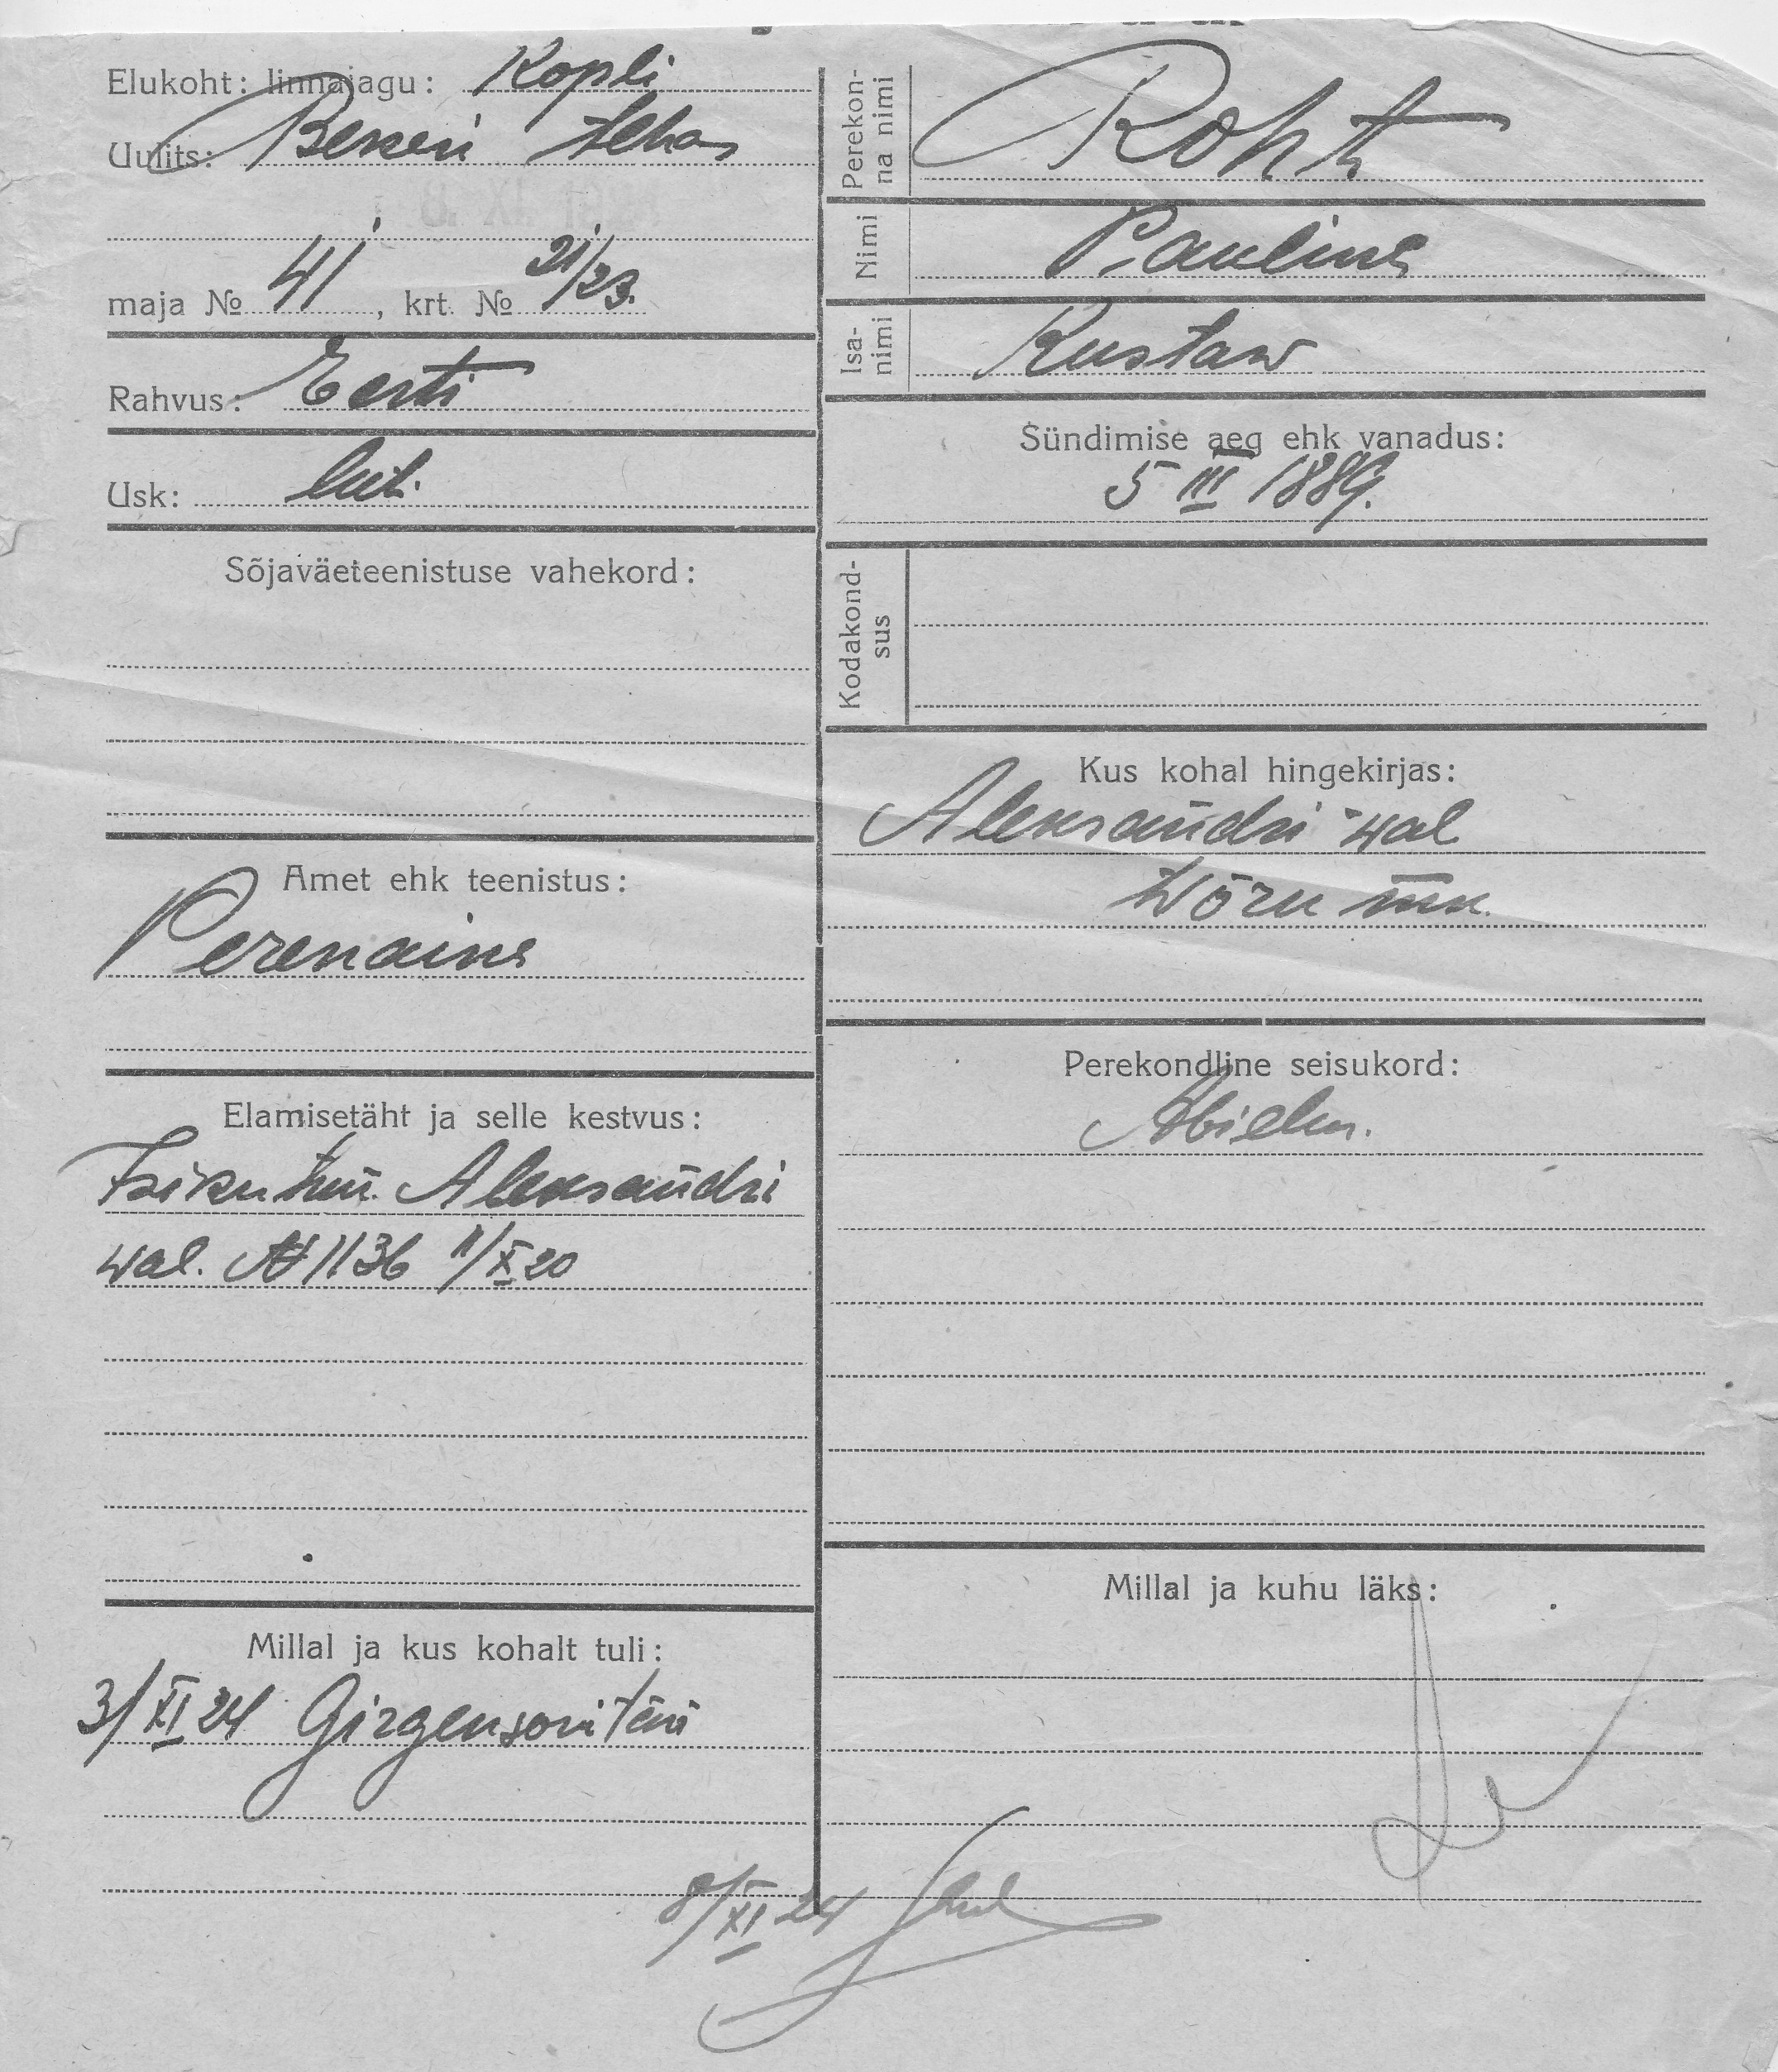 Elukoht: linnajagu: Kopli
Uulits: Bekeri tehas
maja № 41, krt. № 21/23.
Rahvus: Eesti
Usk: lut.
Sõjaväeteenistuse vahekord:
Amet ehk teenistus:
Perenaine
Elamisetäht ja selle kestvus:
Isiku tun. Aleksandri
wal. № 1136 11/X 20
Millal ja kus kohalt tuli:
3/XI 24 Girgensoni tän
8/XI 24
Perekon-
na nimi
Roht
Nimi
Pauline
Isa-
nimi
Kustaw
Sündimise aeg ehk vanadus:
5 III 1889.
Kodakond-
sus
Kus kohal hingekirjas:
Aleksandri wal
Wõru mk.
Perekondline seisukord:
Abielu.
Millal ja kuhu läks: